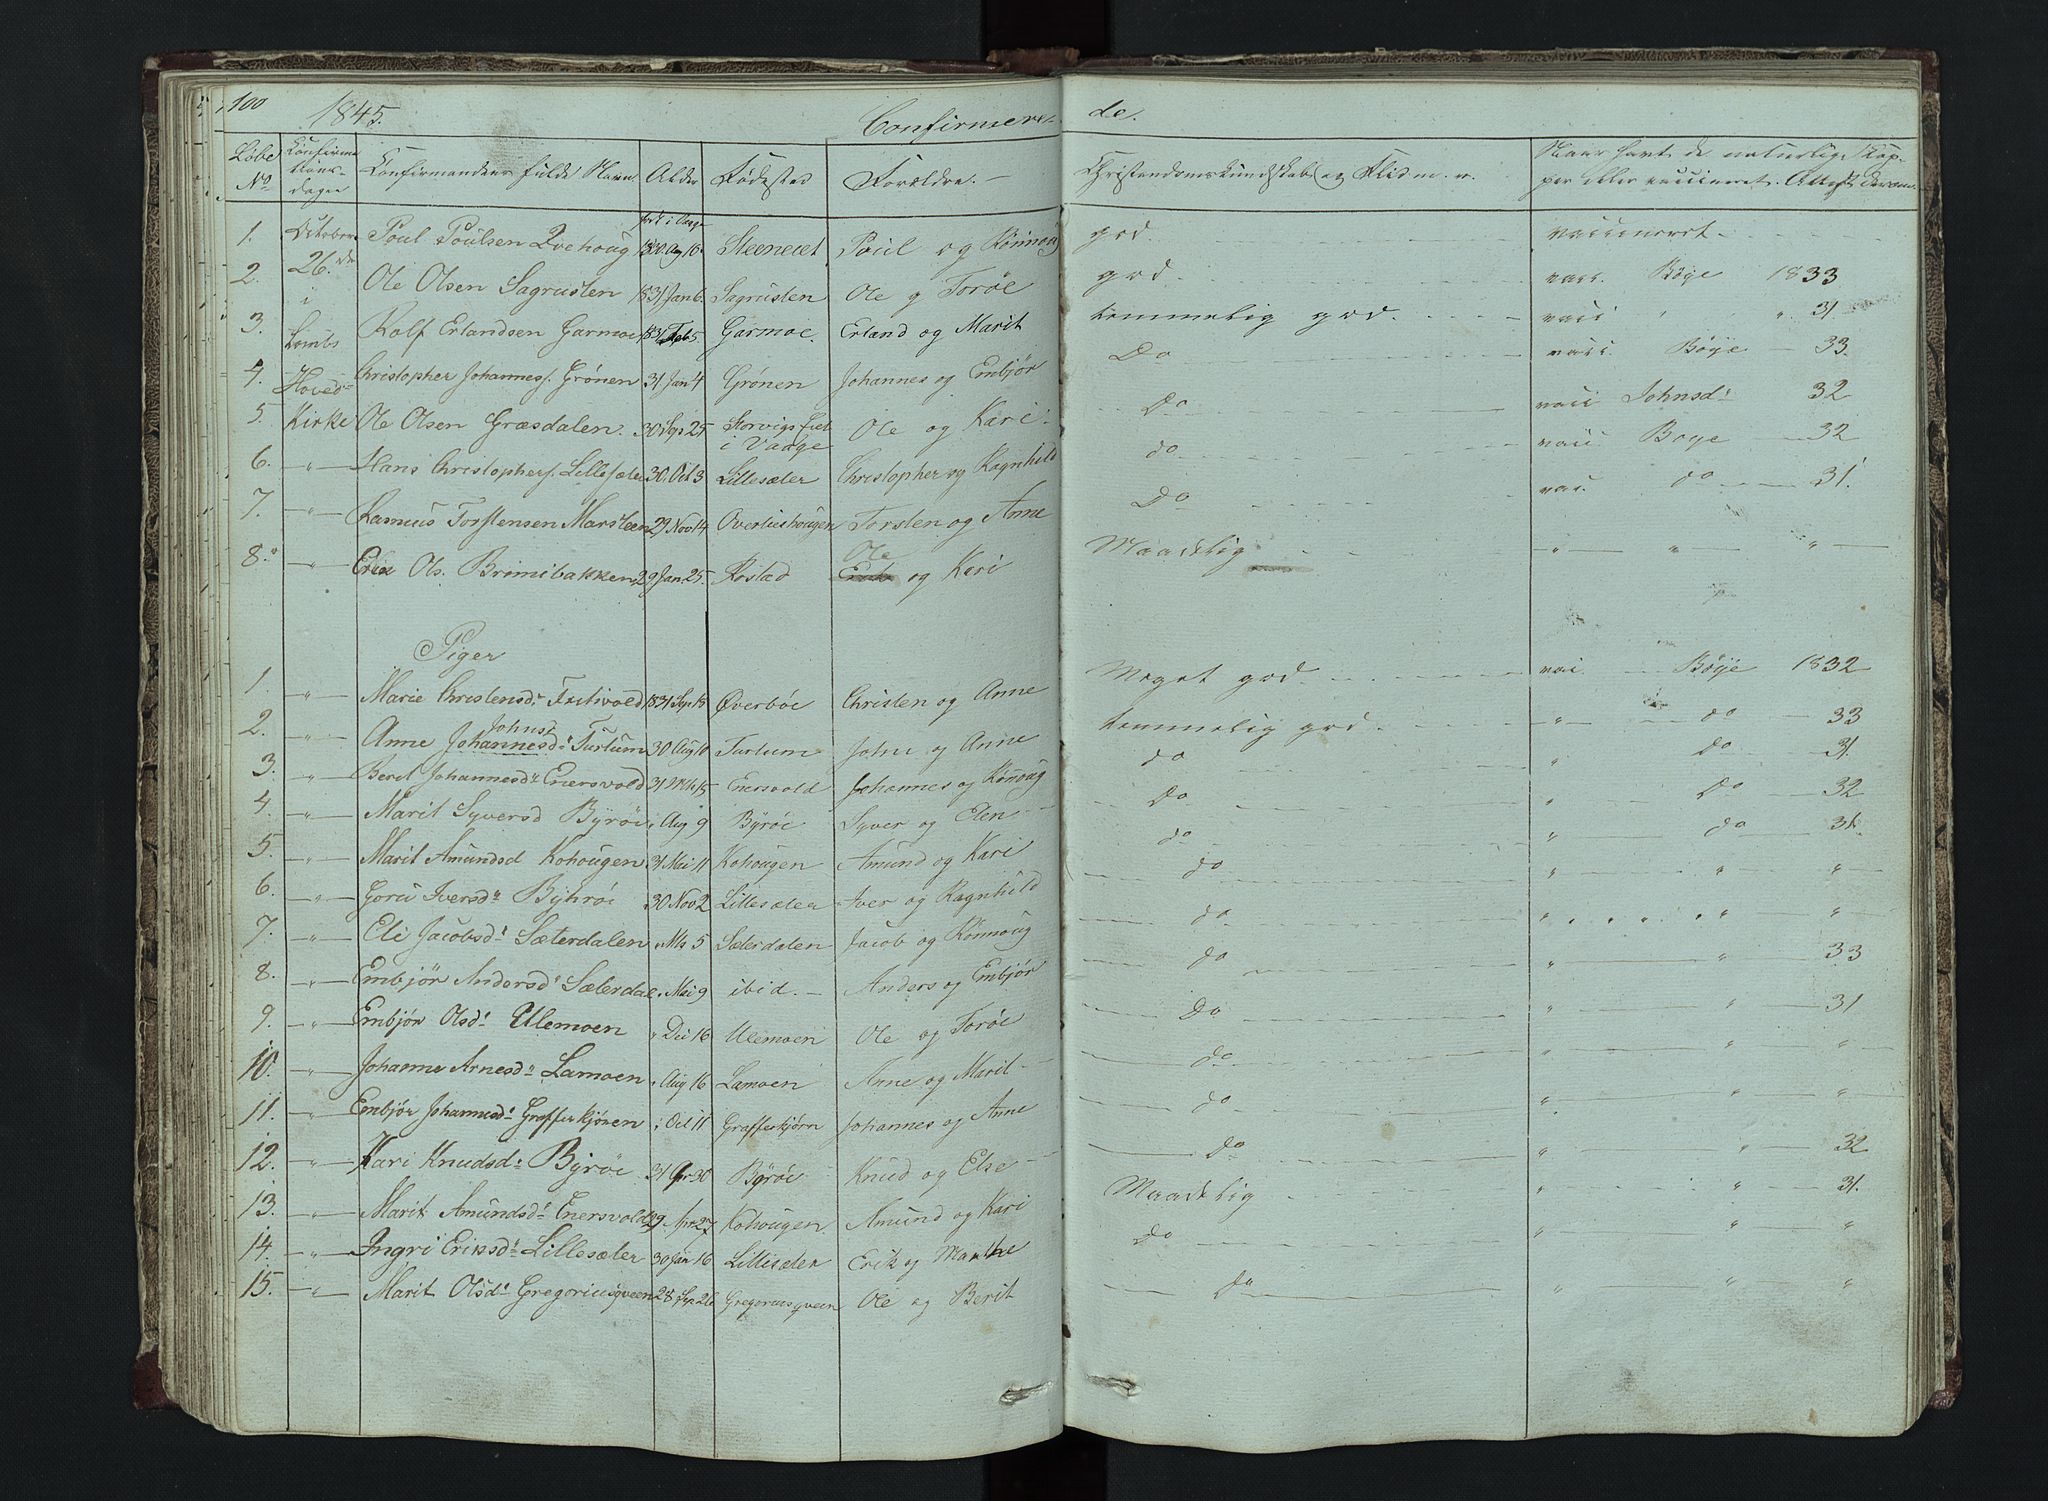 100 1845. Confirmerende.
Løbe No Confirmations-dagen Confirmandens fulde Navn Alder Fødested Forældre. Christendomskundskab og Flid m. v. Naar havt de naturlige Kopper eller vaccineret. Attest derom.
1. October Poul Poulsen 1830 Aug 10 Steeneiet Poul og Rønnoug god vaccineret
2. 26.de Ole Olsen Sagrusten 1831 Jan 6. Sagrusten Ole og Torøe god vacc. Bøye 1833
3. i Rolf Erlandsen Garmoe 1831 Feb 5 Garmoe. Erland og Marit temmelig god vacc " " 31
4. Lombs Christopher Johanness. Grønen 31 Jan 4 Grønen Johannes og Embjør Do vacc. Bøye 33
5. Hoved Kirke Ole Olsen Græsdalen. 30 Sep 25 i Vaage Ole og Kari Do vacc Johnsd 32
6. " Hans Christophers. Lillesæter 30. Oct 3 Lillesæter Christopher og Ragnhild do vacc Boye 32
7. " Rasmus Torstensen Marsteen 29 Nov 14 Torsten og Anne Do vac. do 31.
8. " Erik Ols. Brimibakken 29 Jan. 25. Rostad Ole Erik og Kari Maadelig " " "
Piger
1. " Marie Christensd. 1831 Sep 15 Øverbøe Christen og Anne Meget god vac Bøye 1832
2. " Anne Johnsd Johannesd. Turtum 30 Aug 10 Turtum John og Anne temmelig god " do 33
3. " Berit Johannesd. Enersvold 31 15 Enersvold Johannes og Rønnoug do " Do 31.
4. " Marit Syversd Byrøe " Aug 9 Byrøe Syver og Elen Do " Do 32
5. " Marit Amundsd Kohougen 31 Mai 11 Kohougen Amund og Kari do " do 31.
6. " Goru Iversd. Byhrøe 30 Nov 2 Lillesæter Iver og Ragnhild do " " "
7. " Eli Jacobsd. Sæterdalen " 5 Sæterdalen Jacob og Rønnoug do " " "
8. " Embjør Andersd. Sæterdal " Mai 9 ibid. Anders og Embjør do " " 33
9. " Embjør Olsd. Ulemoen " Dec 16 Ulemoen Ole og Torøe Do " " 31
10. " Johanne Arnesd. Lamoen " Aug 16 Lamoen Arne og Marit do " " "
11. " Embjør Johannesd. Grafferkjønen " Oct 11 Grafferkjørn Johannes og Anne do " " "
12. " Kari Knudsd. Byrøe 31 Apr 30 Byrøe Knud og Else Do " " 32
13. " Marit Amundsd. Enersvold 29 Apr 27 Kohougen Amund og Kari Maadelig " " 31.
14. " Ingri Eriksd. Lillesæter 30 Jan 16 Lillesæter Erik og Marthe Do " " "
15. " Marit Olsd. Gregoriusqveen 28 Sep 26 Gregoriusqveen Ole og Berit Do " " "